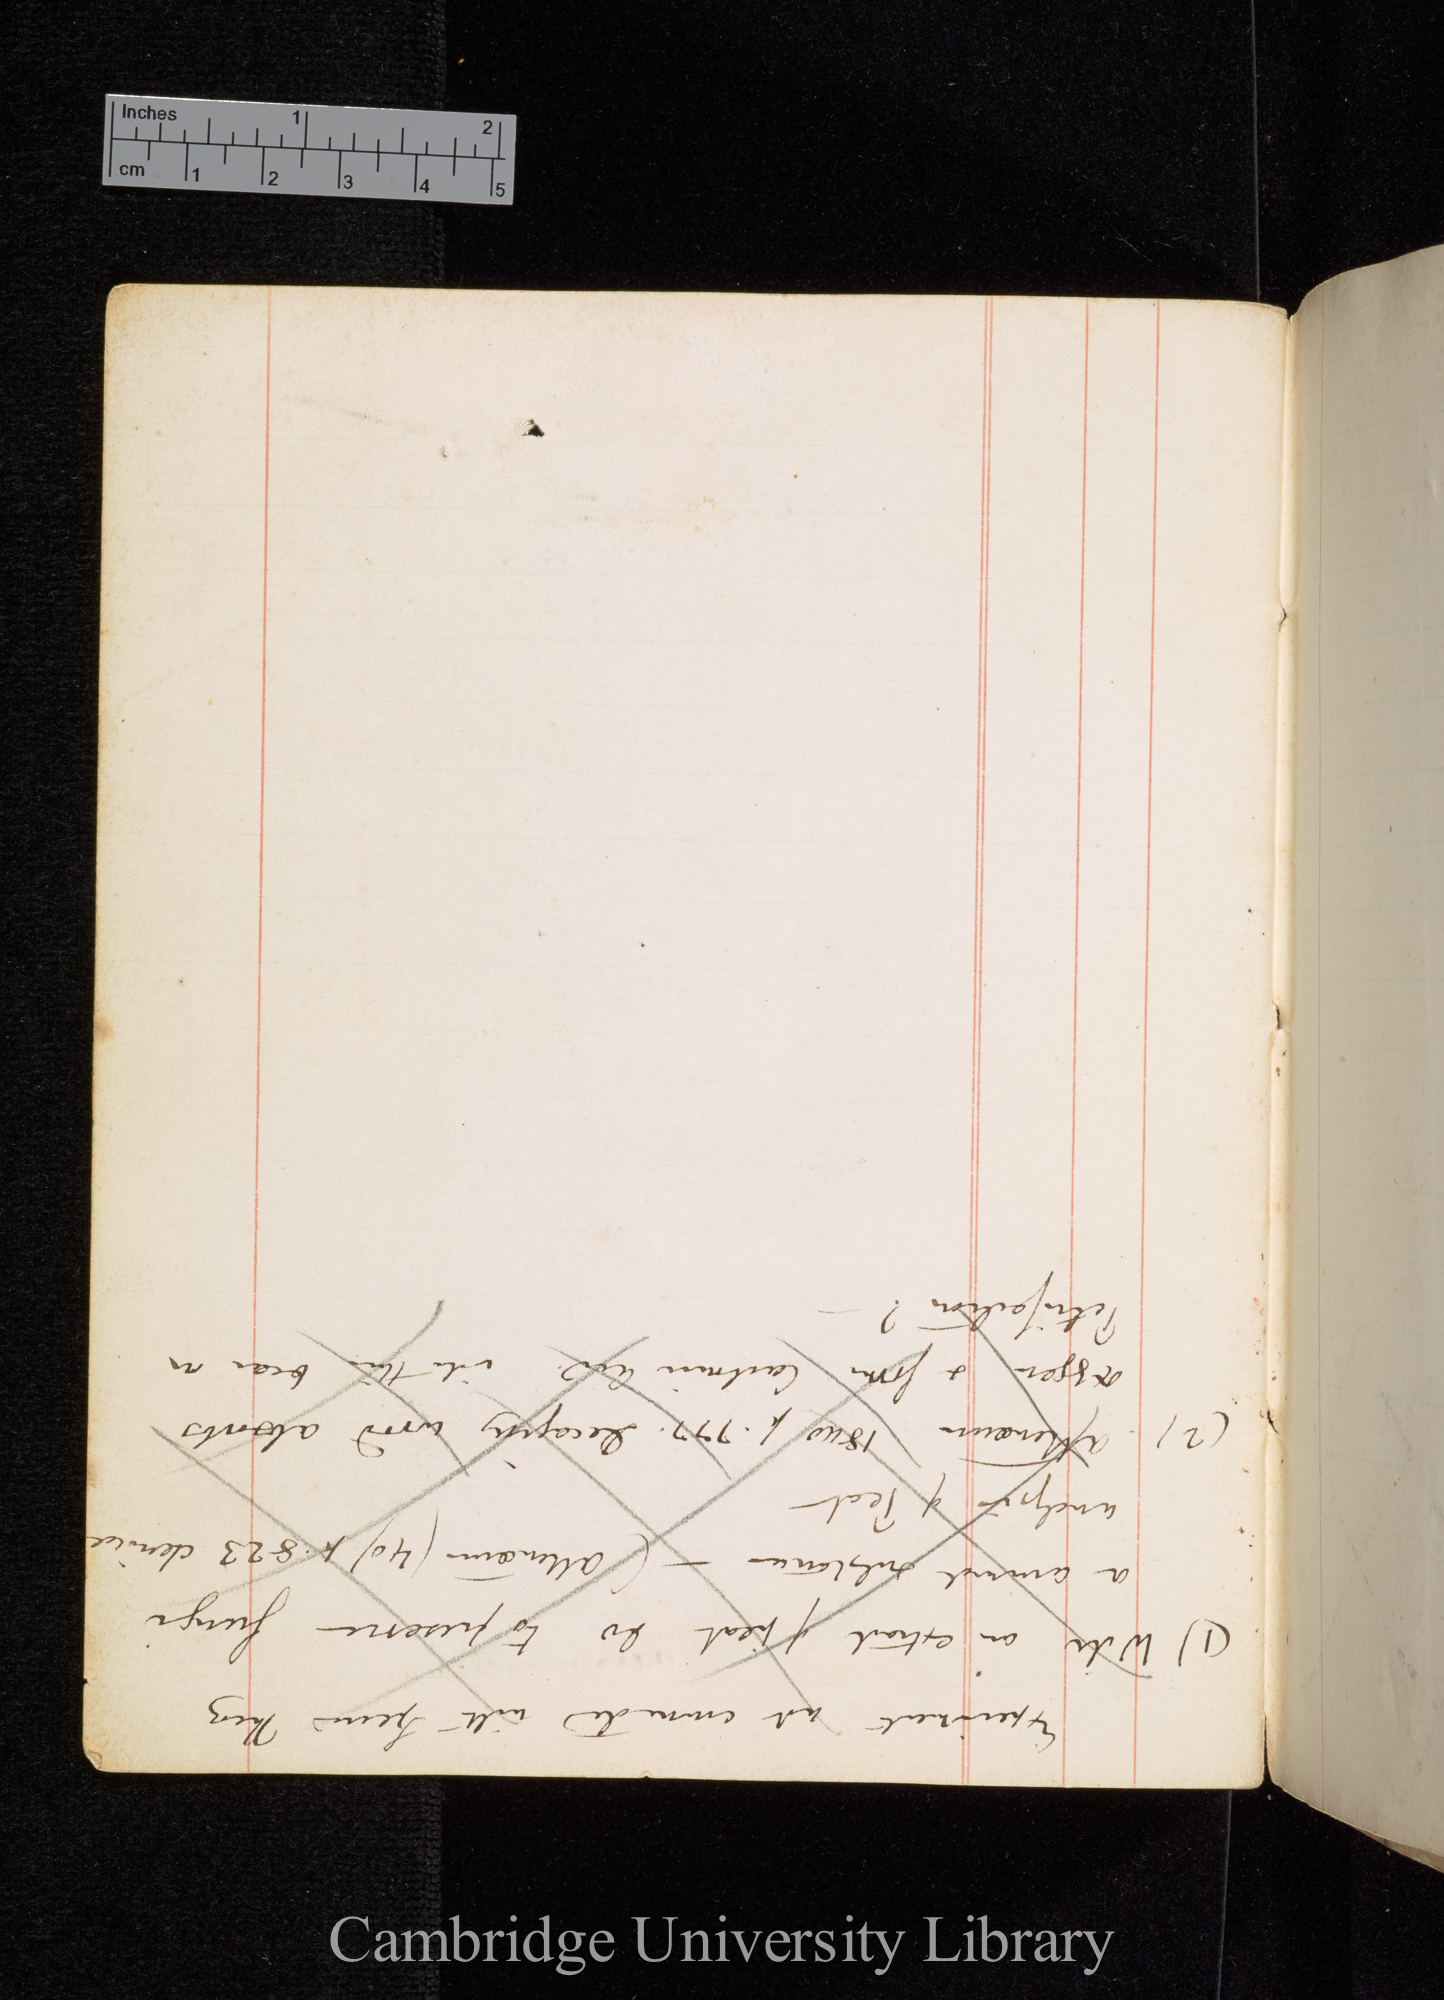 Inches 1 2
cm 1 2 3 4 5
Experiment not connected with Species Theory
(1) Will an extract of peat do to preserve fungi
a animal substance — (Athenæum (40) p. 823 chemical
analysis of Peat —
(2) Athenæum 1840 p. 777. Decaying wood absorbs
oxygen & form Carbonic Acid. will this bear on
Petrifaction? —
Cambridge University Library